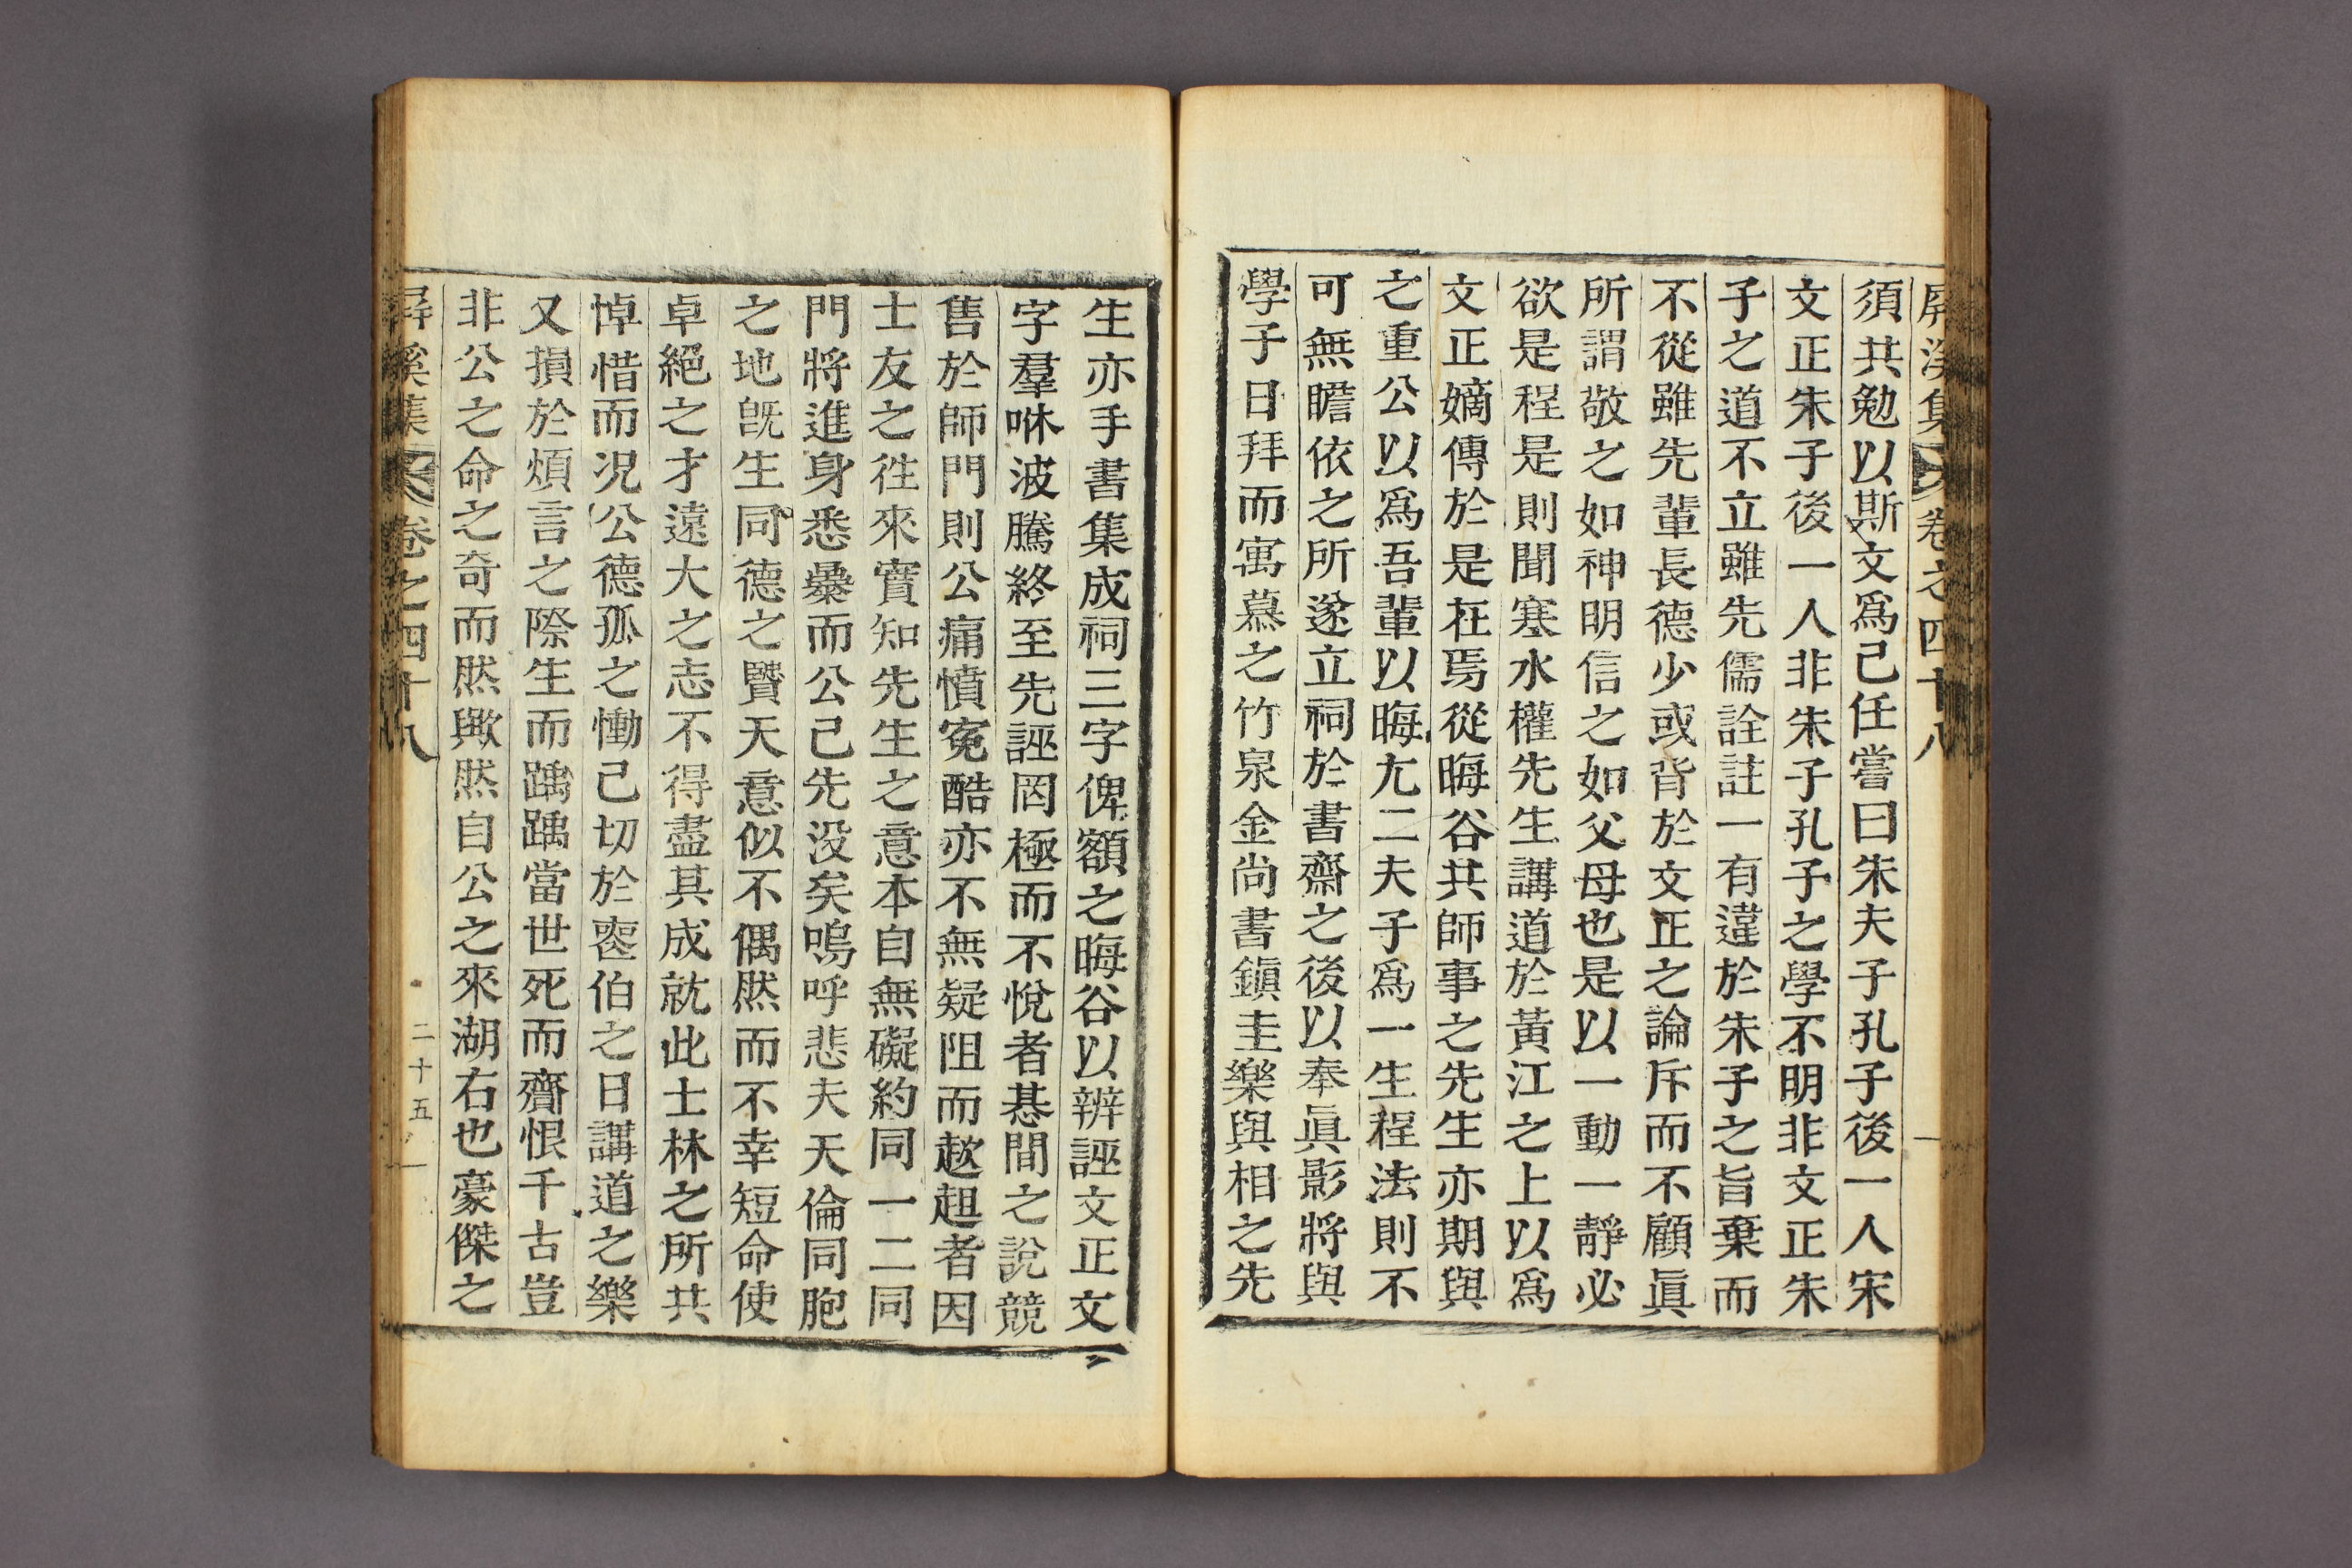 屛溪集 卷之四十八
須共勉以斯文爲己任嘗曰朱夫子孔子後一人宋
文正朱子後一人非朱子孔子之學不明非文正朱
子之道不立雖先儒詮註一有違於朱子之旨棄而
不從雖先輩長德少或背於文正之論斥而不顧眞
所謂敬之如神明信之如父母也是以一動一靜必
欲是程是則聞寒水權先生講道於黃江之上以爲
文正嫡傳於是在焉從晦谷共師事之先生亦期與
之重公以爲吾輩以晦尤二夫子爲一生程法則不
可無瞻依之所遂立祠於書齋之後以奉眞影將與
學子日拜而寓慕之竹泉金尙書鎭圭樂與相之先
生亦手書集成祠三字俾額之晦谷以辨誣文正文
字羣咻波騰終至先誣罔極而不悅者惎間之說競
售於師門則公痛憤寃酷亦不無疑阻而趑趄者因
士友之往來實知先生之意本自無礙約同一二同
門將進身悉㬥而公己先沒矣嗚呼悲夫天倫同胞
之地旣生同德之賢天意似不偶然而不幸短命使
卓絕之才遠大之志不得盡其成就此士林之所共
悼惜而况公德孤之慟己切於喪伯之日講道之樂
又損於煩言之際生而踽踽當世死而齎恨千古豈
非公之命之奇而然歟然自公之來湖右也豪傑之
屛溪集 卷之四十八 二十五